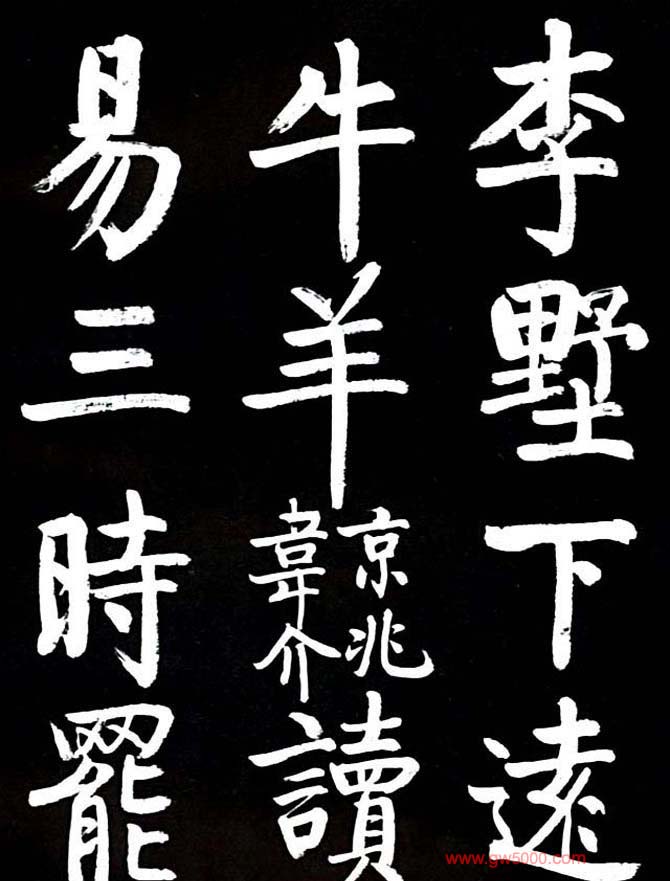 李墅下遠
牛羊
京兆
韋介
讀
易三時罷
www.gw5000.com